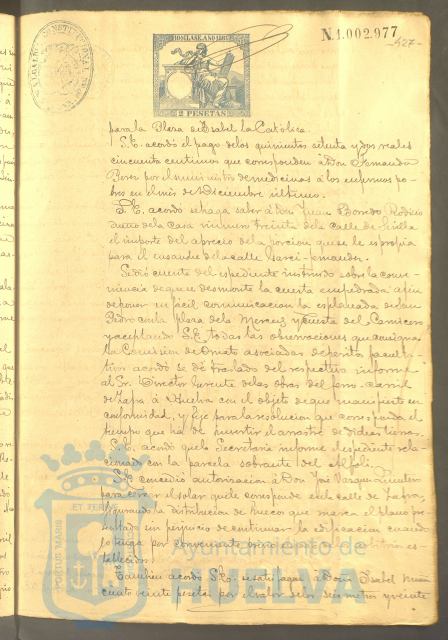 N.1.002.977
-527-
10ª CLASE. AÑO 188
2 PESETAS
ALCALDIA CONSTITUCIONAL
para la Plaza de Isabel la Católica.
S.E. acordó el pago de los quinientos setenta y dos reales
cincuenta centimos que corresponden á Don Fernando
Perez por el suministro de medicinas á los enfermos po-
bres en el mes de Diciembre último.
S.E. acordó se haga saber á Don Juan Rodrio
dueño de la casa número treinta de la calle de Sevilla
el importe del aprecio de la porcion que se le espropia
para el ensanche de la calle Garci-Fernandez.
Se dió cuenta del espediente instruido sobre la conve-
niencia de que se desmonte la cuesta empedrada á fin
de poner en fácil comunicacion la esplanada de San
Pedro con la plaza de la Merced y Cuesta del Carnicero
y aceptando S.E. todas las observaciones que consigna
la Comision de Ornato asociada de peritos faculta-
tivos acordó se dé traslado del respectivo informe
al Sr. Director Gerente de las obras del ferro-carril
de Zafra á Huelva con el objeto de que manifieste su
conformidad, y fije para la resolucion que corresponda el
tiempo que ha de invertir el arrastre de dichas tierras.
S.E. acordó que la Secretaria informe el espediente rela-
cionado con la parcela sobrante del Alfolí.
S.E. concedió autorizacion á Don José Vazquez
para cerrar el solar que le corresponde en la calle de Zafra,
figurando la distribucion de huecos que marca el plano pre-
sentado sin perjuicio de continuar la edificacion cuando
lo tenga por conveniente
establecidos.
Tambien acordó S.E. se satisfagan á Doña Isabel
ciento veinte pesetas por el valor de los seis metros y veinte
PORTUS MARIS
ET TERRÆ
Ayuntamiento de
HUELVA